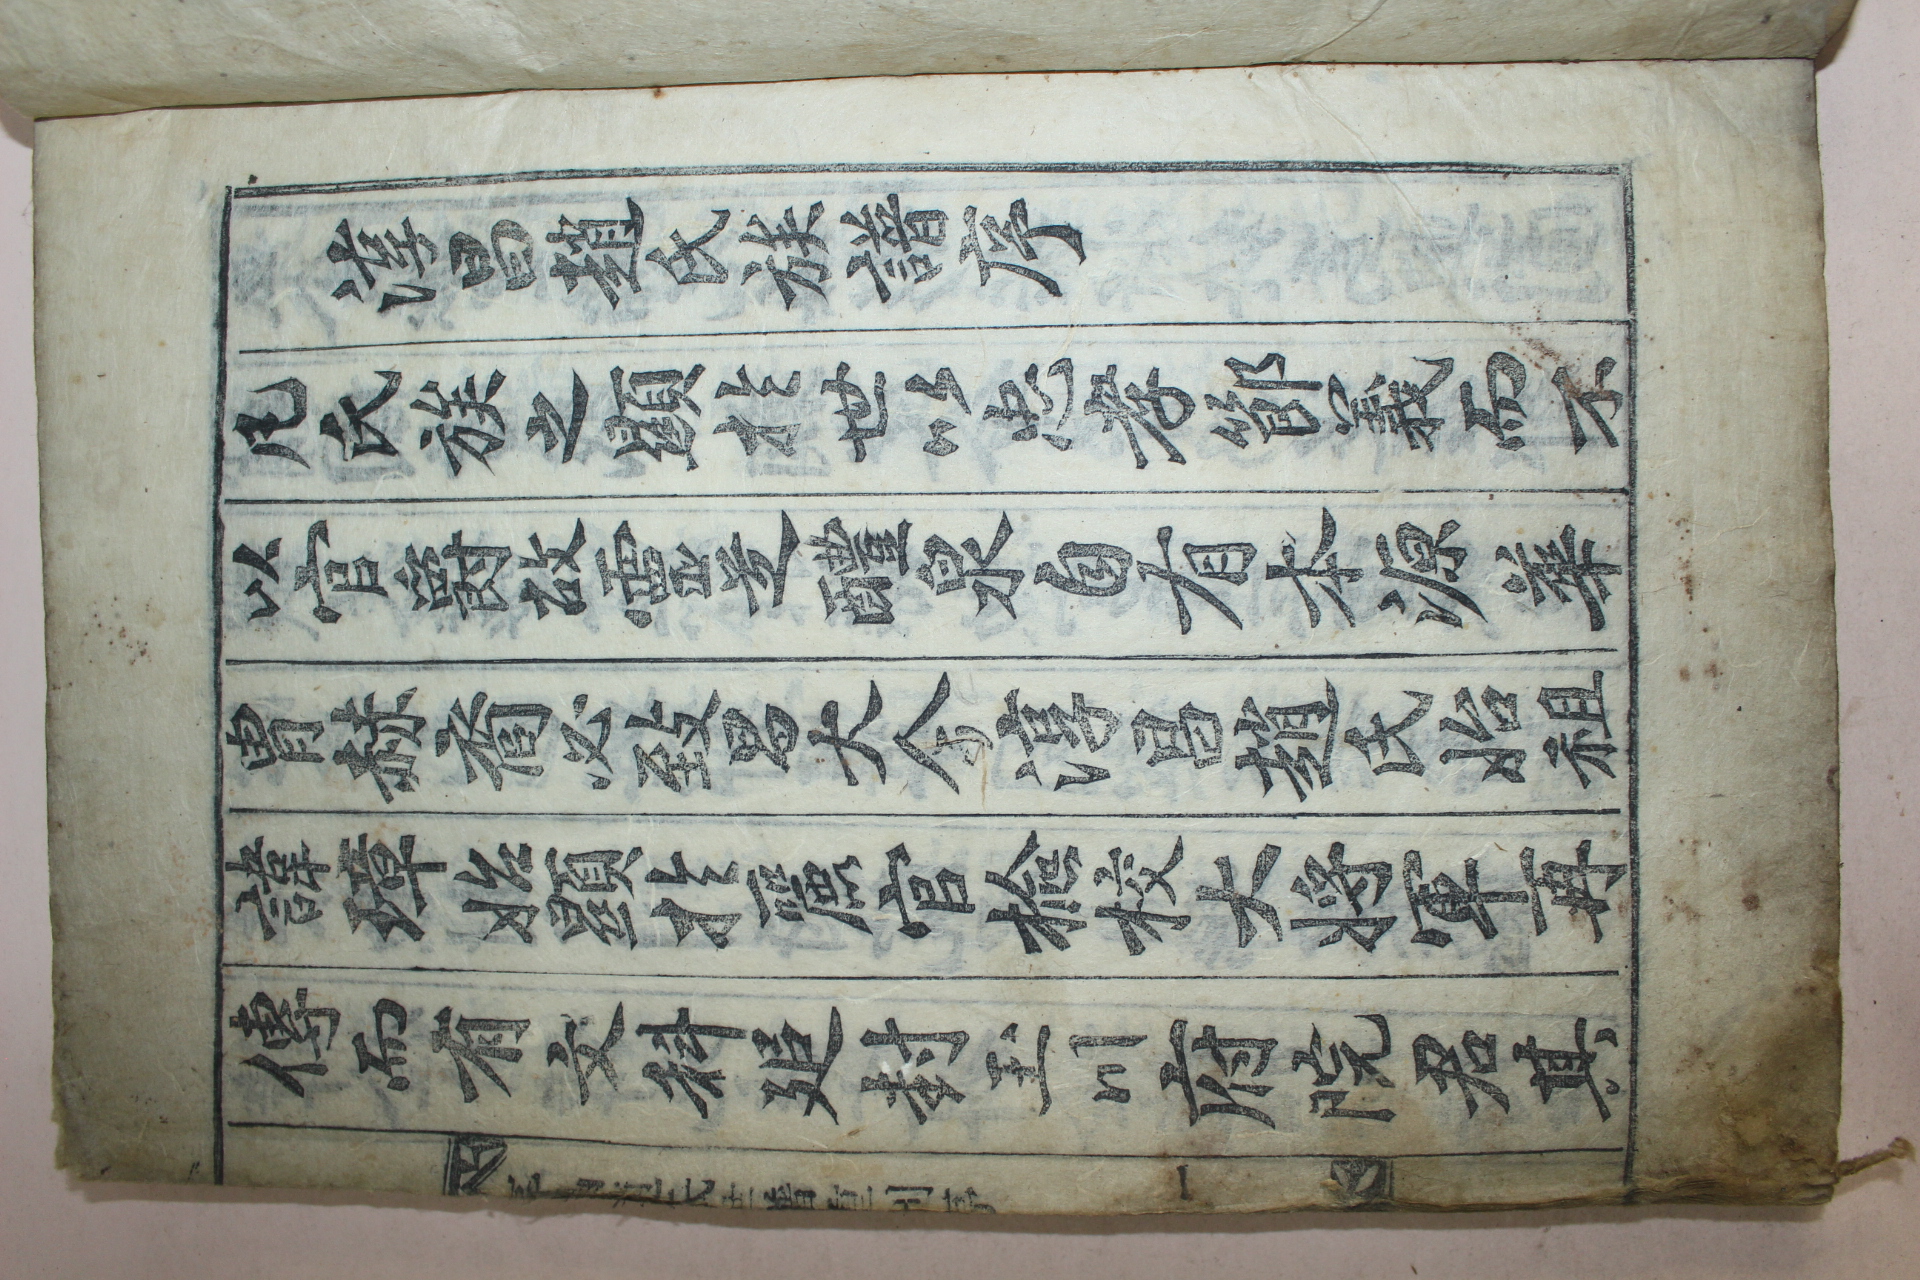 淳昌趙氏族譜序
凡氏族之顯於世以忠孝節義而不
以官爵故靈芝醴泉自有本源華
冑赫裔必致昌大今淳昌趙氏始祖
諱璋始顯於麗官檢校大將軍再
傳而有文科追封玉川府院君其